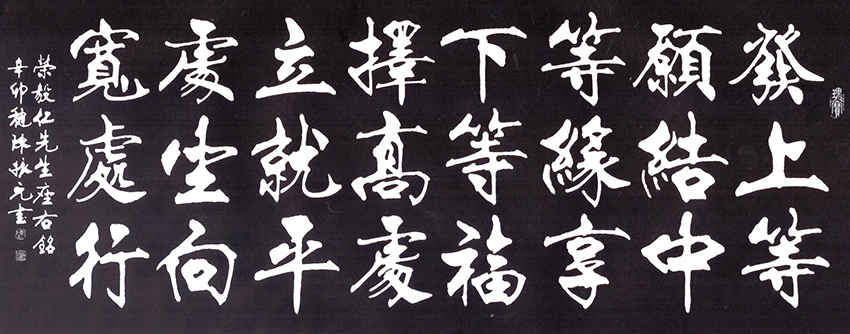 發上等
願結中
等緣享
下等福
擇高處
立就平
處坐向
寬處行
榮毅仁先生座右銘
辛卯穐陳振元書